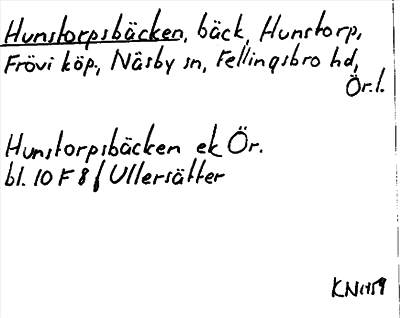 Hunstorpsbäcken, bäck, Hunstorp,
Frövi köp, Näsby sn, Fellingsbro hd,
Ör. l.
Hunstorpsbäcken ek Ör.
bl. 10 F 8 f Ullersätter